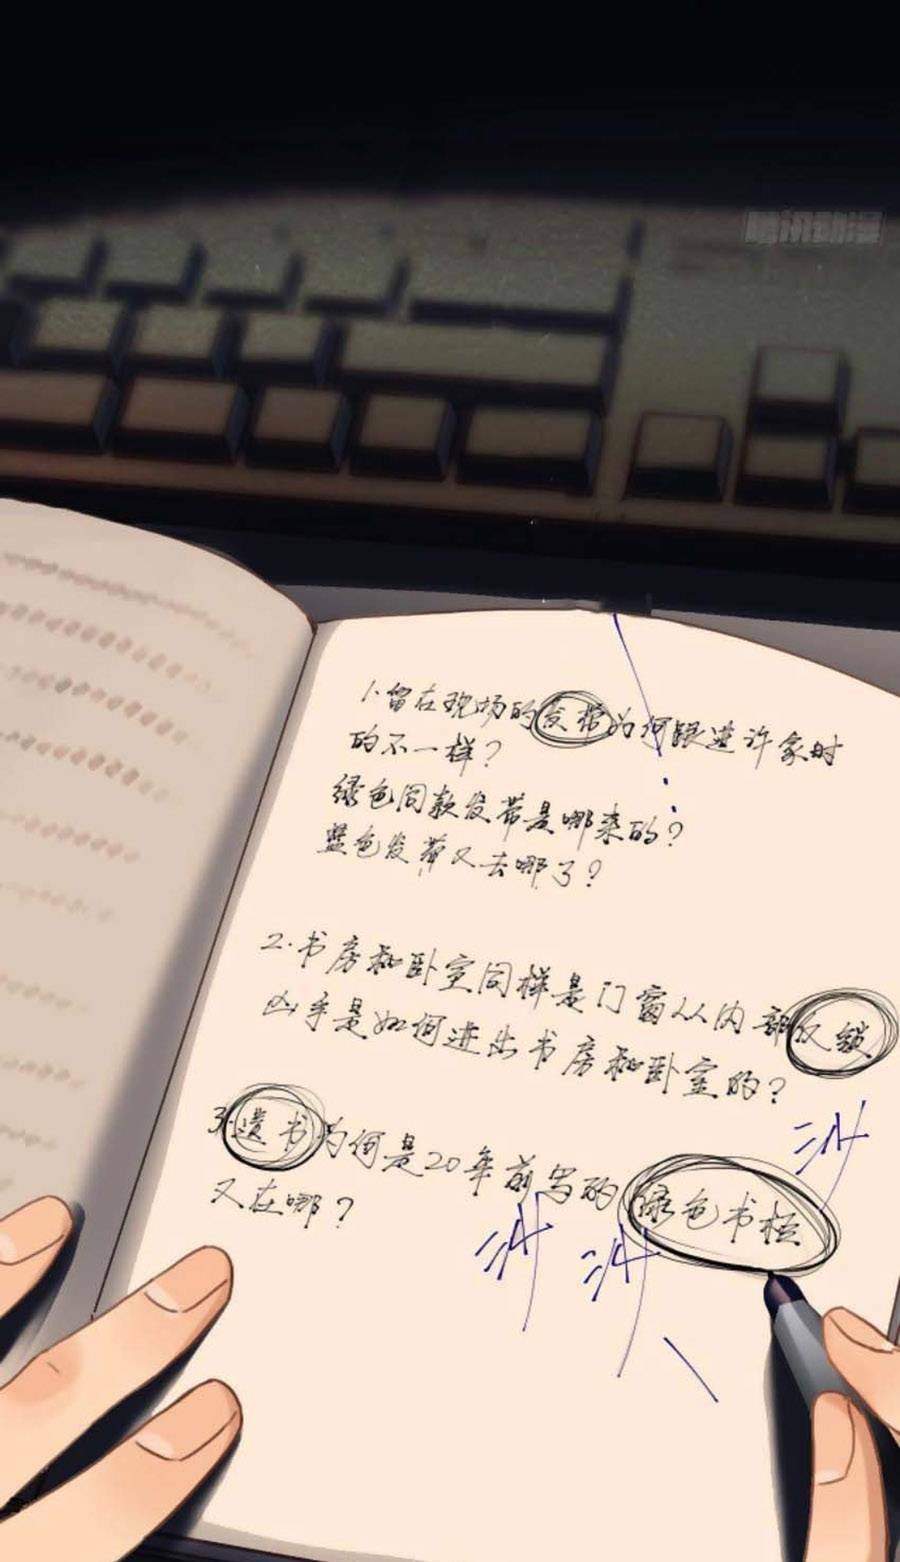 1.留在现场的发带为何跟进许家时
的不一样？
绿色同款发带是哪来的？
蓝色发带又去哪了？
2.书房和卧室同样是门窗从内部反锁
凶手是如何进出书房和卧室的？
3.遗书为何是20年前写的绿色书柜
又在哪？
沙
沙
沙